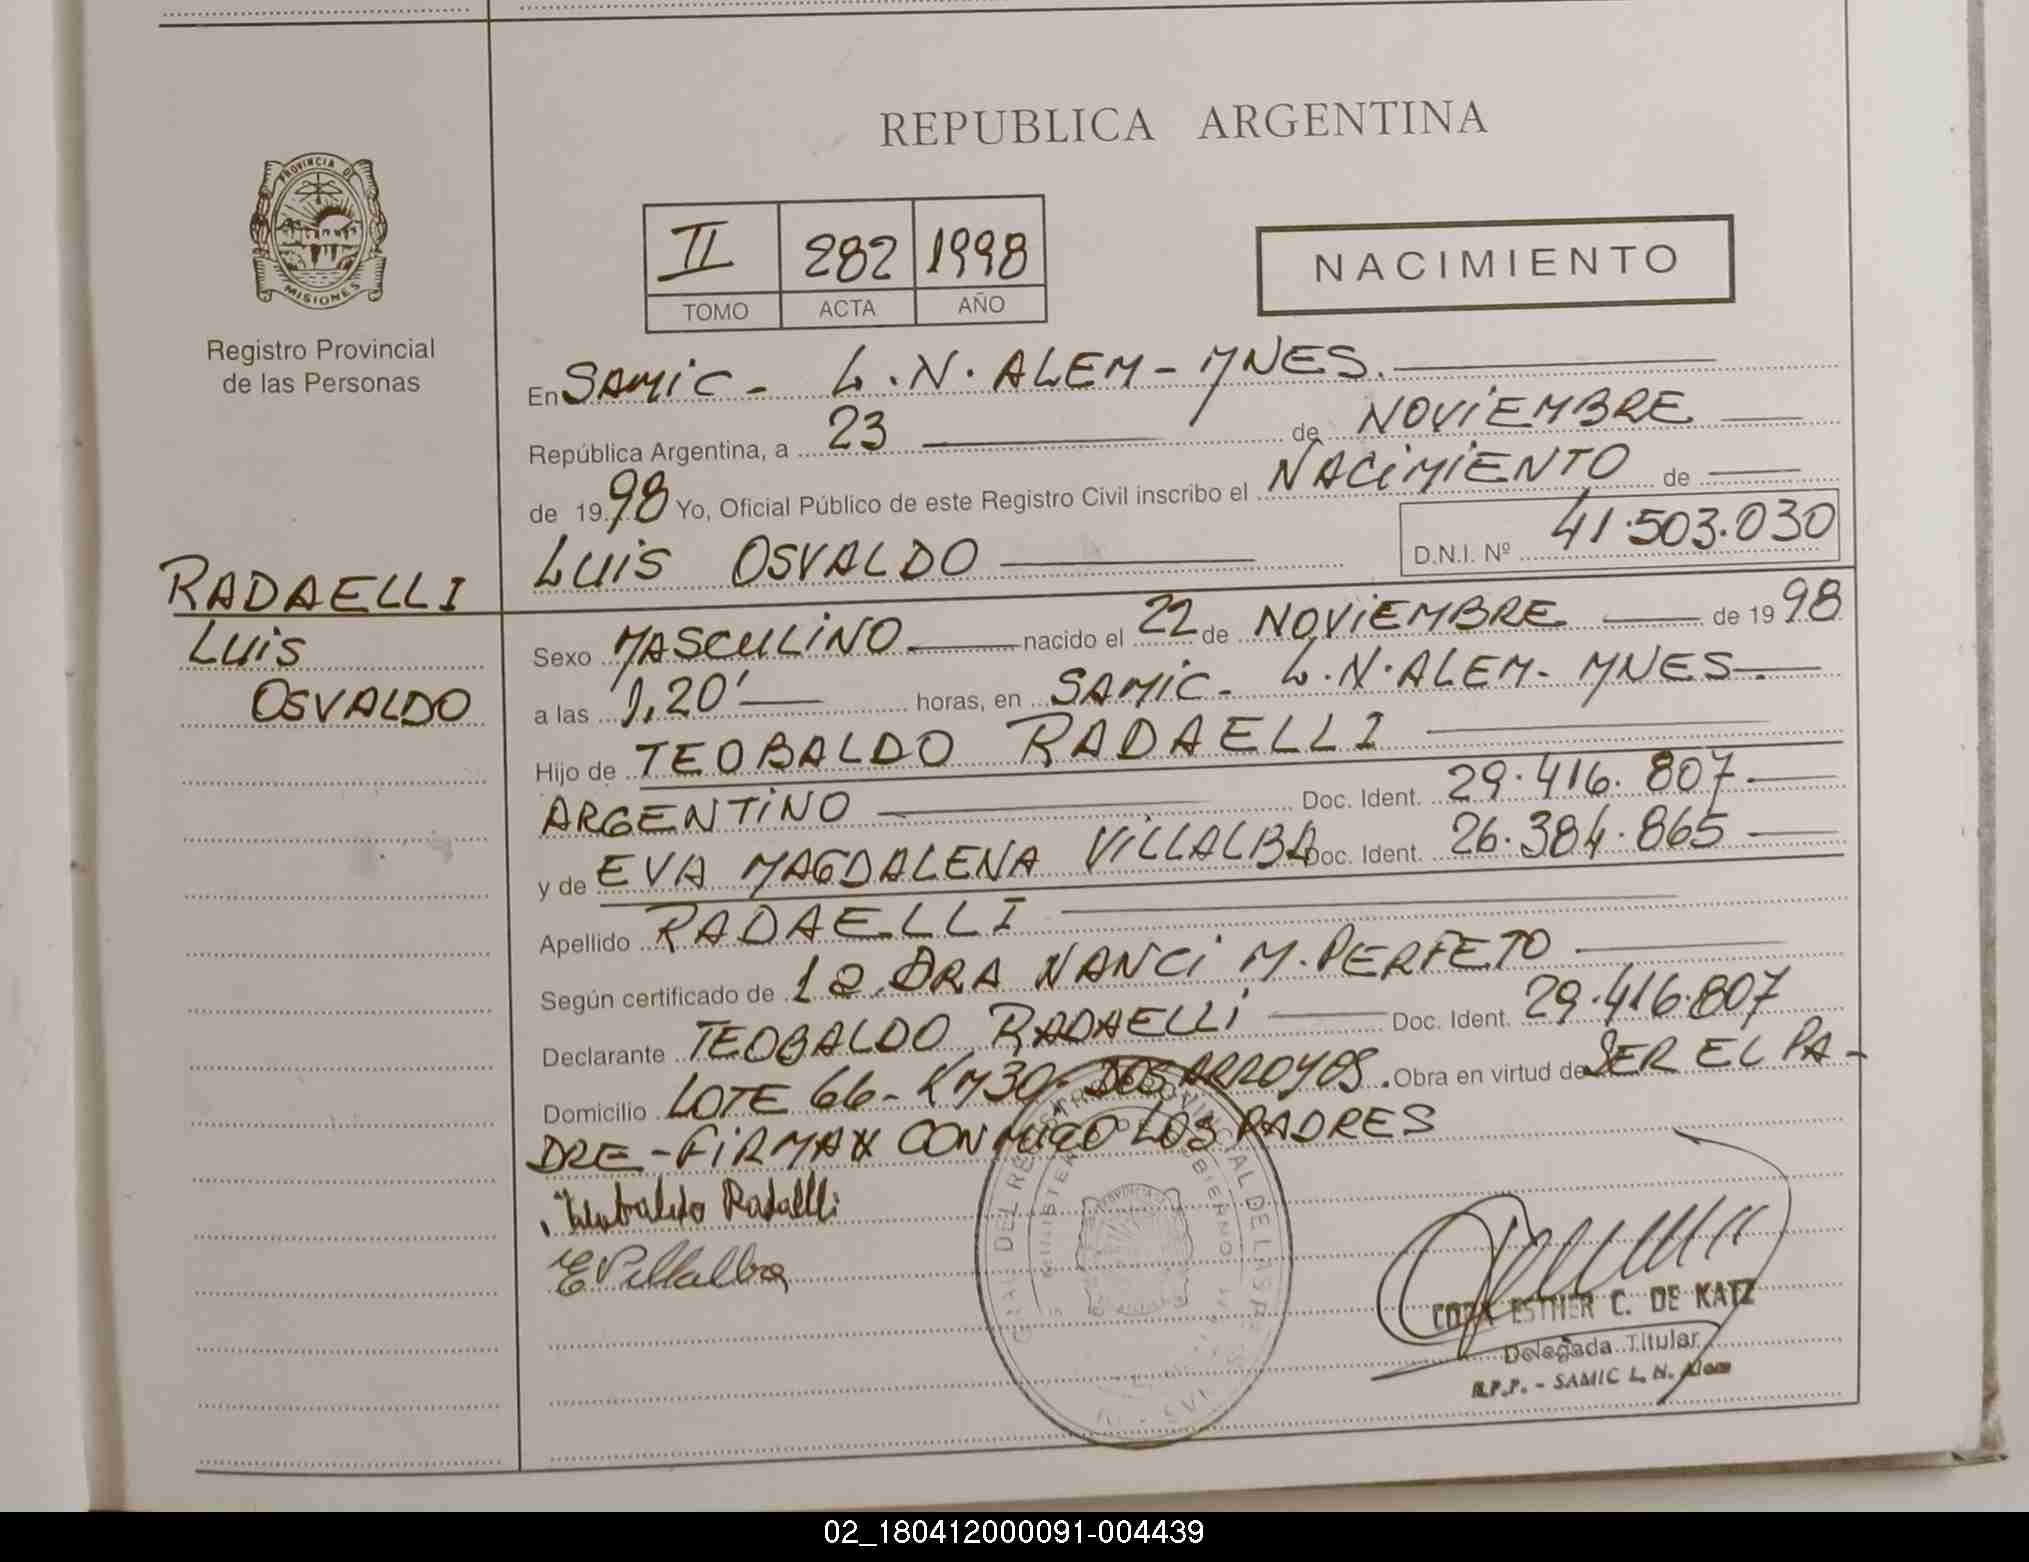 REPUBLICA ARGENTINA
PROVINCIA DE
MISIONES
Registro Provincial
de las Personas
II 282 1998
TOMO ACTA AÑO
NACIMIENTO
En SAMIC - L.N. ALEM - MNES.
República Argentina, a 23 de NOVIEMBRE
de 1998 Yo, Oficial Público de este Registro Civil inscribo el NACIMIENTO de
LUIS OSVALDO D.N.I. Nº 41.503.030
RADAELLI
LUIS
OSVALDO
Sexo MASCULINO nacido el 22 de NOVIEMBRE de 1998
a las 1,20' horas, en SAMIC - L.N. ALEM - MNES.
Hijo de TEOBALDO RADAELLI
ARGENTINO Doc. Ident. 29.416.807
y de EVA MAGDALENA VILLALBA Doc. Ident. 26.384.865
Apellido RADAELLI
Según certificado de LA DRA NANCI M. PERFETO
Declarante TEOBALDO RADAELLI Doc. Ident. 29.416.807
Domicilio LOTE 66 - KM30 - DOS ARROYOS. Obra en virtud de SER EL PA-
DRE - FIRMAN CONMIGO LOS PADRES
Teobaldo Radaelli
E Villalba
ESTHER C. DE KATZ
Delegada Titular
R.P.P. - SAMIC L. N. Alem
02_180412000091-004439